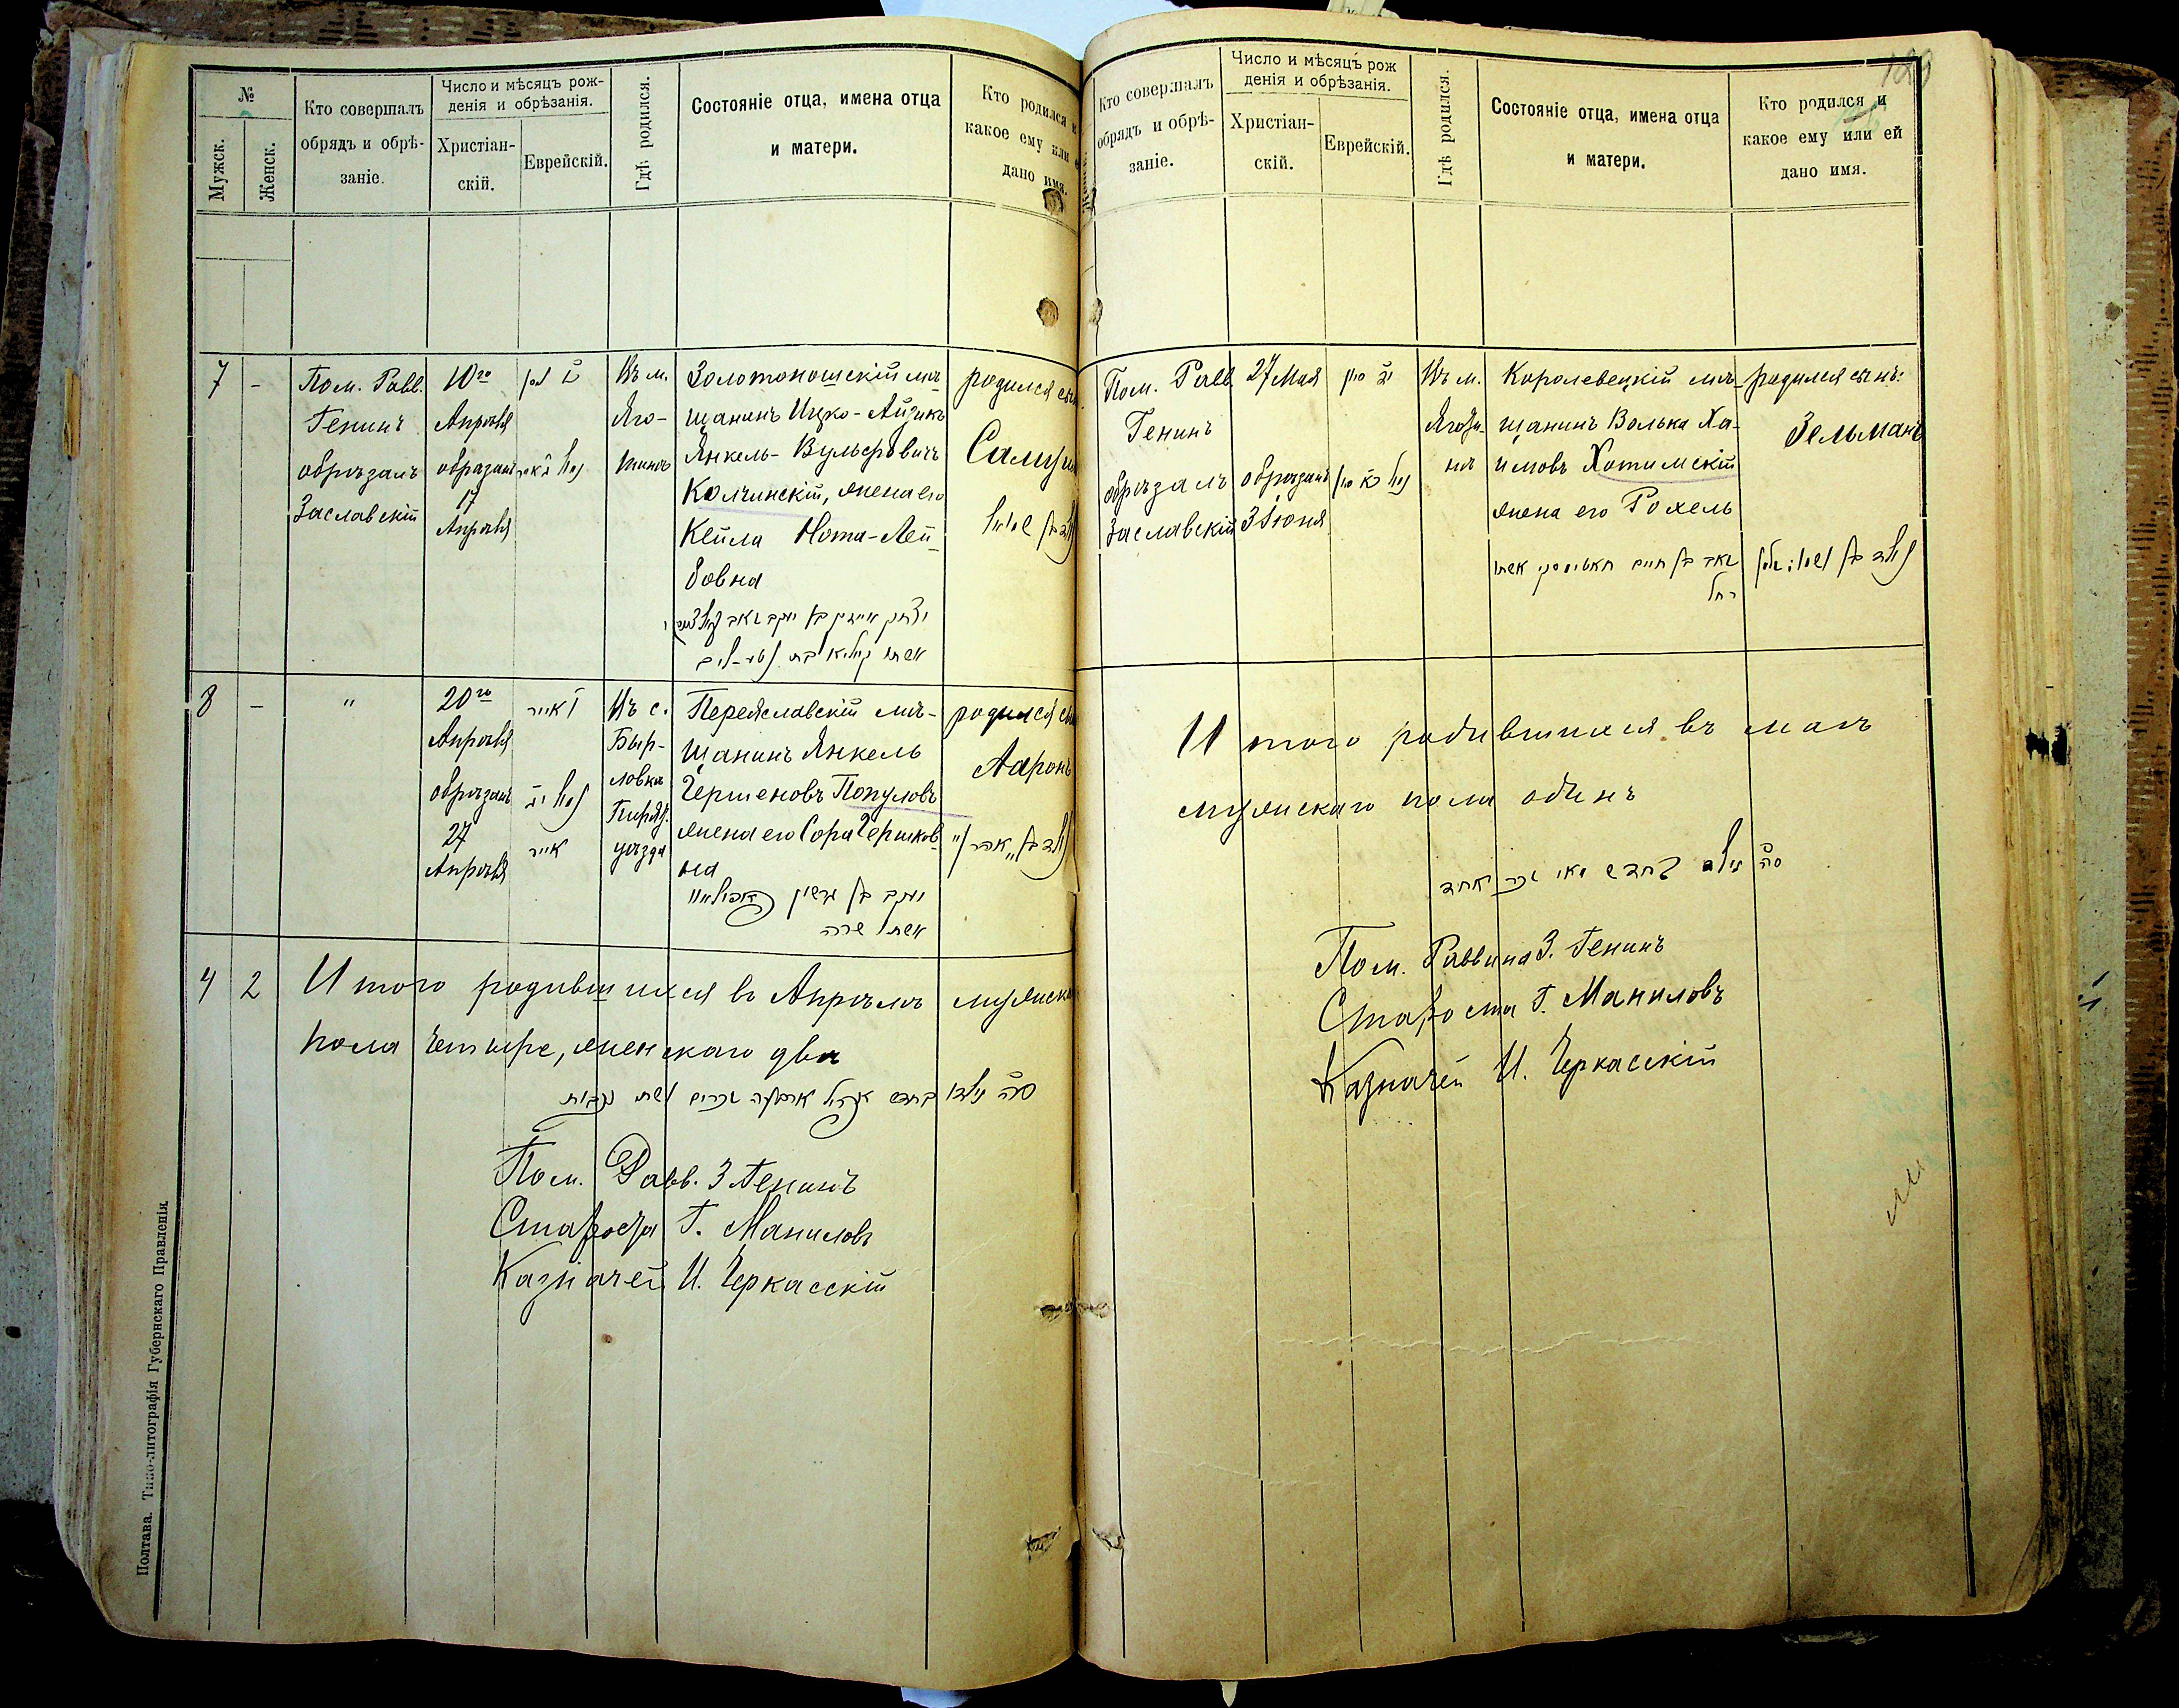 №
Мужск.
Женск.
Кто совершалъ
обрядъ и обрѣ-
заніе.
Число и мѣсяцъ рож-
денія и обрѣзанія.
Христіан-
скій.
Еврейскій.
Гдѣ родился.
Состояніе отца, имена отца
и матери.
Кто родился и
какое ему или
дано имя.
7
-
Пом. Равв.
Генинъ
обрѣзалъ
Заславскій
10го
Апрѣля
обрѣзанъ
17
Апрѣля
Въ м.
Яго-
тинѣ
Золотоношскій мѣ-
щанинъ Ицко-Айзикъ
Янкель-Вульфовичъ
Колчинскій, жена его
Кейла Нота-Лей-
бовна
родился сынъ
יצחק אייזיק בן יעקב
8
-
"
20го
Апрѣля
обрѣзанъ
27
Апрѣля
אייר
אייר
Въ с.
Быр-
ловка
Пиряч.
уѣзда
Переяславскій мѣ-
щанинъ Янкель
Гершеновъ Популовъ
жена его Сора Гершков-
на
יעקב בן גרשון
אשתו שרה
родился
Ааронъ
4
2
Итого родившихся въ Апрѣлѣ мужска
пола четыре, женскаго два
סה״כ נולדו בחדש אפריל ארבעה זכרים ושתי נקבות
Пом. Равв. З Генинъ
Староста Г. Маниловъ
Казначей И. Черкасскій
Полтава. Типо-литографія Губернскаго Правленія
Кто совершалъ
обрядъ и обрѣ-
заніе.
Число и мѣсяцъ рож
денія и обрѣзанія.
Христіан-
скій.
Еврейскій.
Гдѣ родился.
Состояніе отца, имена отца
и матери.
Кто родился и
какое ему или ей
дано имя.
Пом. Равв
Генинъ
обрѣзалъ
Заславскій
27 Мая
обрѣзанъ
3 Іюня
Въ м.
Яготи-
нѣ
Королевецкій мѣ-
щанинъ Волька Ха-
имовъ Хотимскій
жена его Рохель
זאב בן חיים חאטימסקי אשתו
רחל
родился сынъ:
Зельманъ
Итого родившихся въ маѣ
мужскаго пола одинъ
סה״כ נולד בחדש מאי זכר אחד
Пом. Раввина З. Генинъ
Староста Г. Маниловъ
Казначей И. Черкасскій